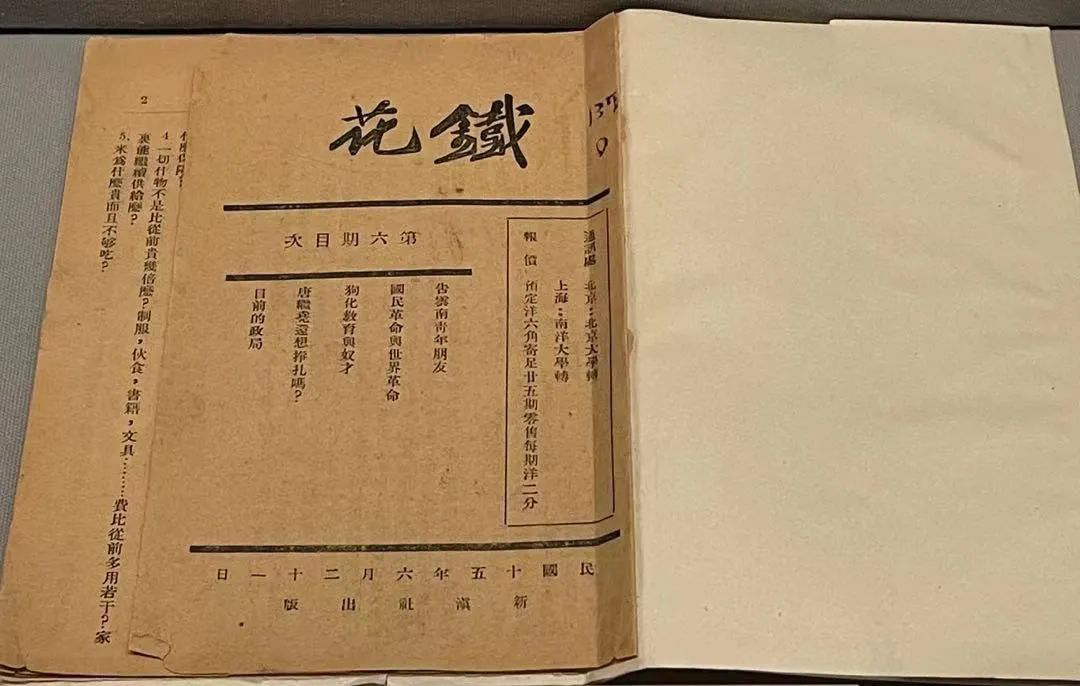 鐵花
137
0
通訊處 北京：北京大學轉
上海：南洋大學轉
報價 預定洋六角寄足廿五期零售每期洋二分
第六期目次
告雲南靑年朋友
國民革命與世界革命
狗化敎育與奴才
唐繼堯還想掙扎嗎？
目前的政局
民國十五年六月二十一日
新滇社出版
2
4. 一切什物不是比從前貴幾倍麽？制服，伙食，書籍，文具………費比從前多用若干？家
裏能繼續供給麽？
5. 米爲什麽貴而且不够吃？